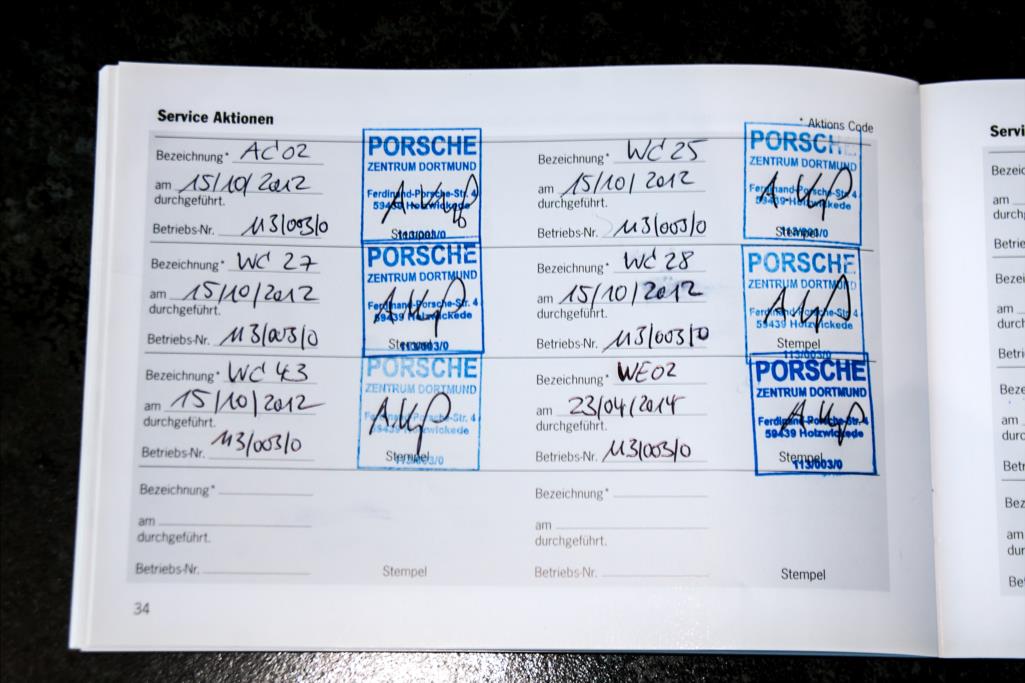 Service Aktionen
* Aktions Code
Bezeichnung* AC 02
am 15/10/2012
durchgeführt.
Betriebs-Nr. 113/003/0
Stempel
PORSCHE
ZENTRUM DORTMUND
Ferdinand-Porsche-Str. 4
59439 Holzwickede
113/003/0
Bezeichnung* WC 25
am 15/10/2012
durchgeführt.
Betriebs-Nr. 113/003/0
Stempel
PORSCHE
ZENTRUM DORTMUND
Ferdinand-Porsche-Str. 4
59439 Holzwickede
113/003/0
Bezeichnung* WC 27
am 15/10/2012
durchgeführt.
Betriebs-Nr. 113/003/0
Stempel
PORSCHE
ZENTRUM DORTMUND
Ferdinand-Porsche-Str. 4
59439 Holzwickede
113/003/0
Bezeichnung* WC 28
am 15/10/2012
durchgeführt.
Betriebs-Nr. 113/003/0
Stempel
PORSCHE
ZENTRUM DORTMUND
Ferdinand-Porsche-Str. 4
59439 Holzwickede
113/003/0
Bezeichnung* WC 43
am 15/10/2012
durchgeführt.
Betriebs-Nr. 113/003/0
Stempel
PORSCHE
ZENTRUM DORTMUND
Ferdinand-Porsche-Str. 4
59439 Holzwickede
113/003/0
Bezeichnung* WE 02
am 23/04/2014
durchgeführt.
Betriebs-Nr. 113/003/0
Stempel
PORSCHE
ZENTRUM DORTMUND
Ferdinand-Porsche-Str. 4
59439 Holzwickede
113/003/0
Bezeichnung*
am
durchgeführt.
Betriebs-Nr.
Stempel
Bezeichnung*
am
durchgeführt.
Betriebs-Nr.
Stempel
34